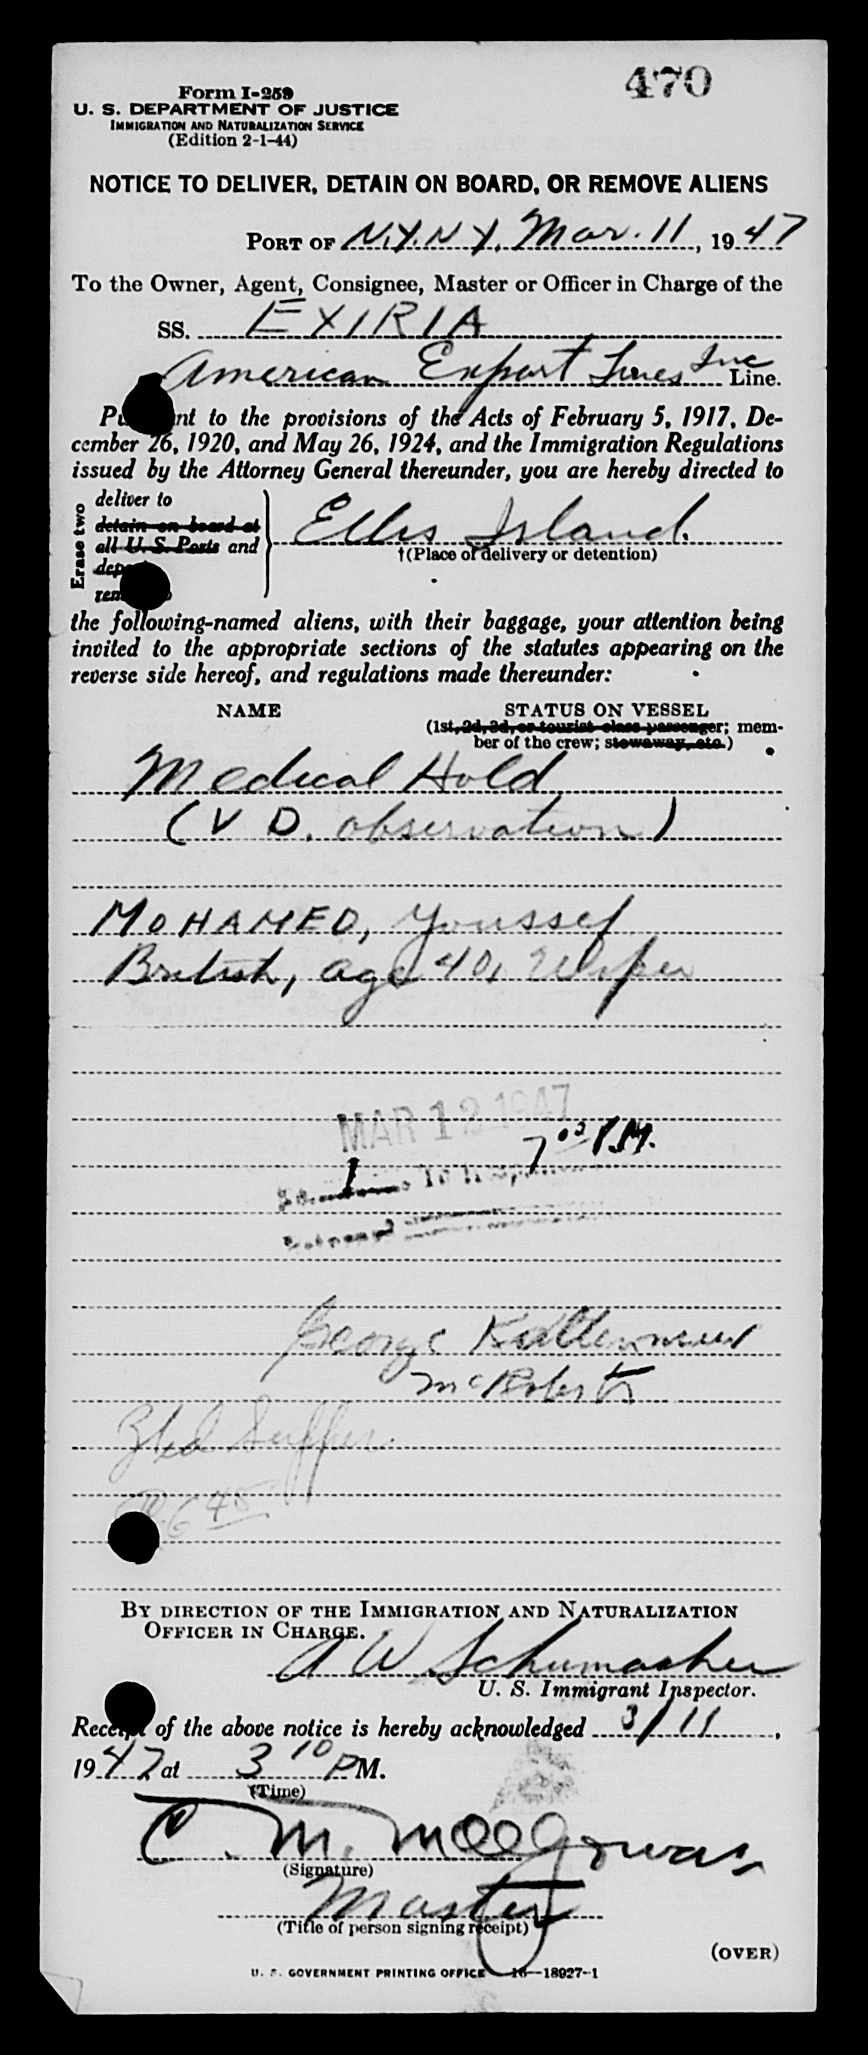 470
Form I-259
U. S. DEPARTMENT OF JUSTICE
IMMIGRATION AND NATURALIZATION SERVICE
(Edition 2-1-44)
NOTICE TO DELIVER, DETAIN ON BOARD, OR REMOVE ALIENS
PORT OF N.Y.N.Y. Mar. 11, 1947
To the Owner, Agent, Consignee, Master or Officer in Charge of the
SS. EXIRIA
American Export Lines Inc Line.
nt to the provisions of the Acts of February 5, 1917, De-
cember 26, 1920, and May 26, 1924, and the Immigration Regulations
issued by the Attorney General thereunder, you are hereby directed to
Erase two
deliver to
detain on board at
all U. S. Ports and
Ellis Island.
†(Place of delivery or detention)
the following-named aliens, with their baggage, your attention being
invited to the appropriate sections of the statutes appearing on the
reverse side hereof, and regulations made thereunder:
NAME STATUS ON VESSEL
(1st, 2d, 3d, or tourist class passenger; mem-
ber of the crew; stowaway, etc.)
Medical Hold
(V D. observation)
MOHAMED, Youssef
British, age 40, Wiper
MAR 12 1947
7 00 P.M.
1
George
McRoberts
6 45
BY DIRECTION OF THE IMMIGRATION AND NATURALIZATION
OFFICER IN CHARGE.
A W Schumacher
U. S. Immigrant Inspector.
Receipt of the above notice is hereby acknowledged 3/11,
1947 at 3 10 PM.
(Time)
C. M. MacGowan
(Signature)
Master
(Title of person signing receipt)
(OVER)
U. S. GOVERNMENT PRINTING OFFICE 16—18927-1